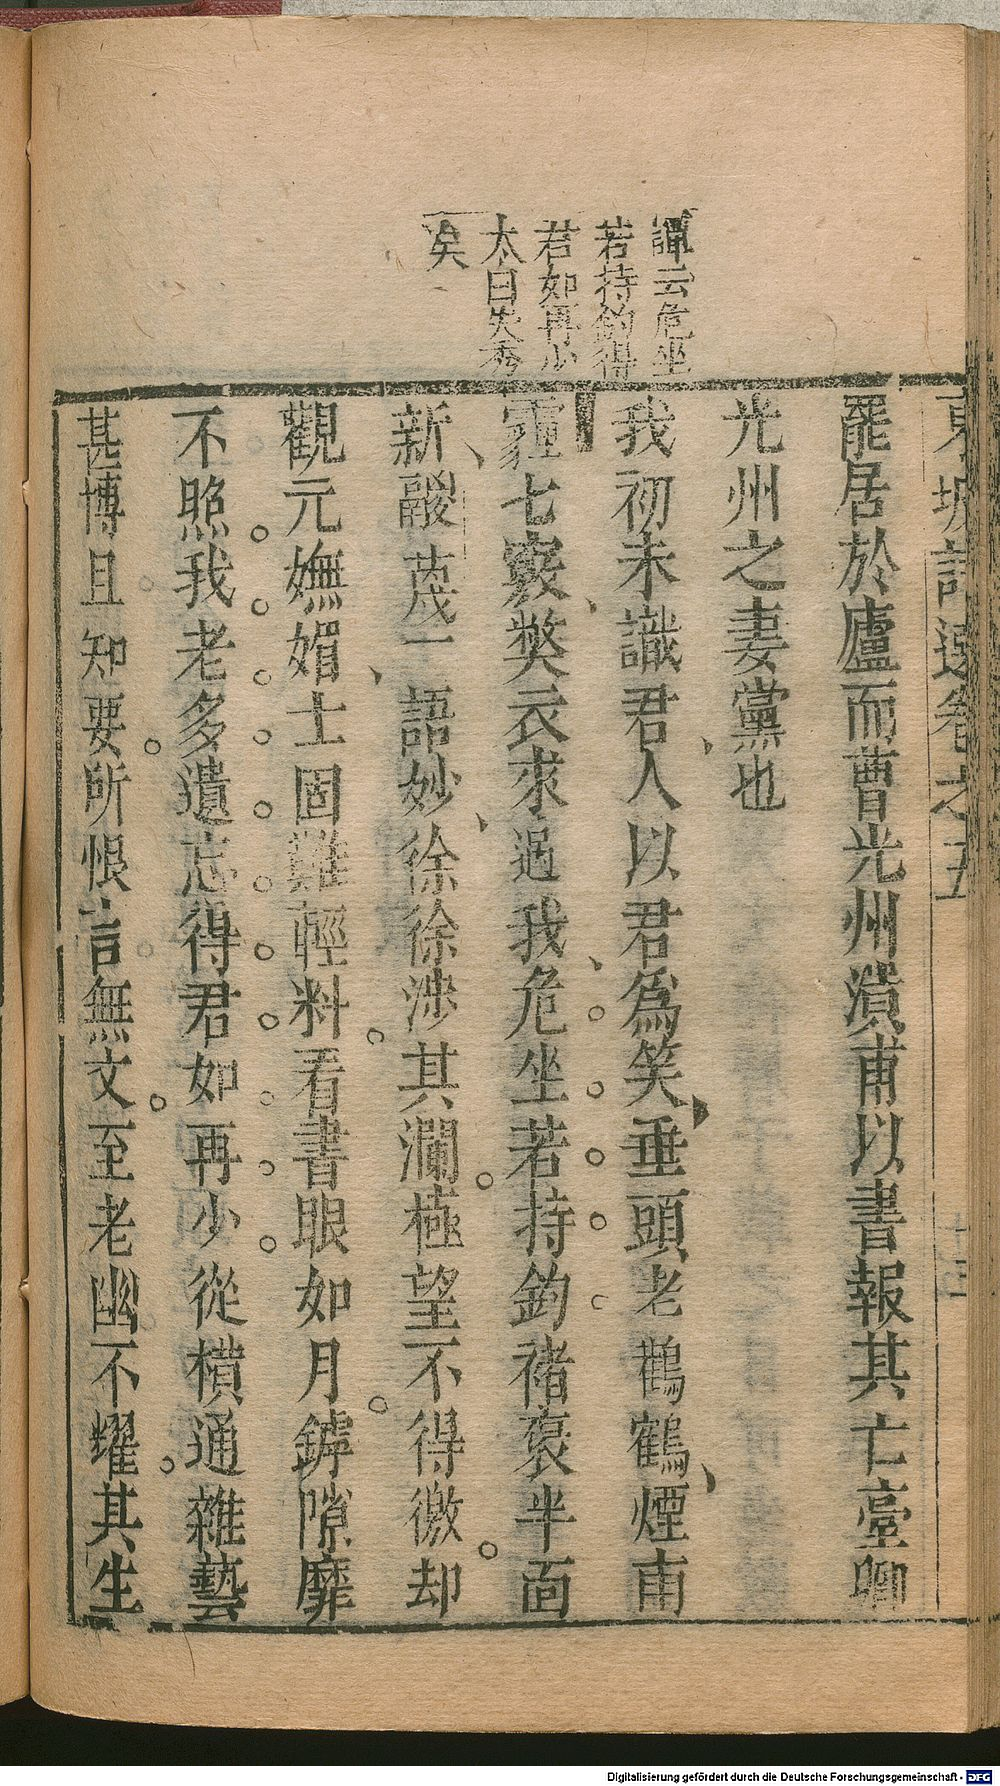 東坡詩選卷之五
十三
譚云危坐
若持鈞得
君如再少
太白失秀
矣
罷居於廬而曹光州潰甫以書報其亡臺卿
光州之妻黨也
我初未識君人以君爲笑垂頭老鸛鶴煙雨
霾七竅獘衣求過我危坐若持鈞褚裒半面
新鬷蔑一語妙徐徐涉其瀾極望不得徼却
觀元嫵媚士固難輕料看書眼如月罅隙靡
不照我老多遺忘得君如再少從橫通雜藝
甚博且知要所恨言無文至老幽不耀其生
Digitalisierung gefördert durch die Deutsche Forschungsgemeinschaft - DFG